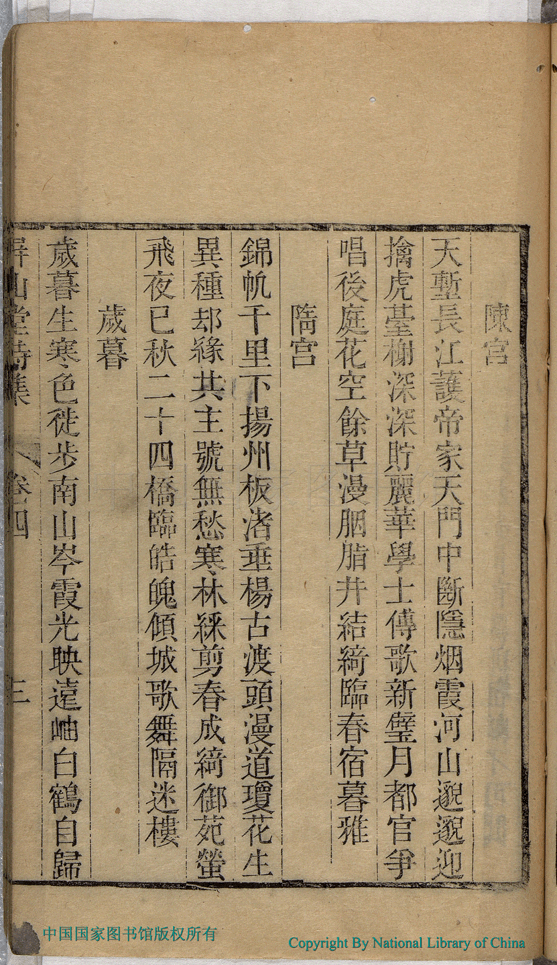 陳宮
天塹長江護帝家天門中斷隱烟霞河山邈邈迎
擒虎臺榭深深貯麗華學士傳歌新璧月都官爭
唱後庭花空餘草漫胭脂井結綺臨春宿暮雅
隋宮
錦帆千里下揚州板渚垂楊古渡頭漫道瓊花生
異種却緣共主號無愁寒林綵剪春成綺御苑螢
飛夜已秋二十四橋臨皓魄傾城歌舞隔迷樓
歲暮
歲暮生寒色徙步南山岑霞光映遠岫白鶴自歸
屏山堂詩集 卷四 三
中国国家图书馆版权所有
Copyright By National Library of China